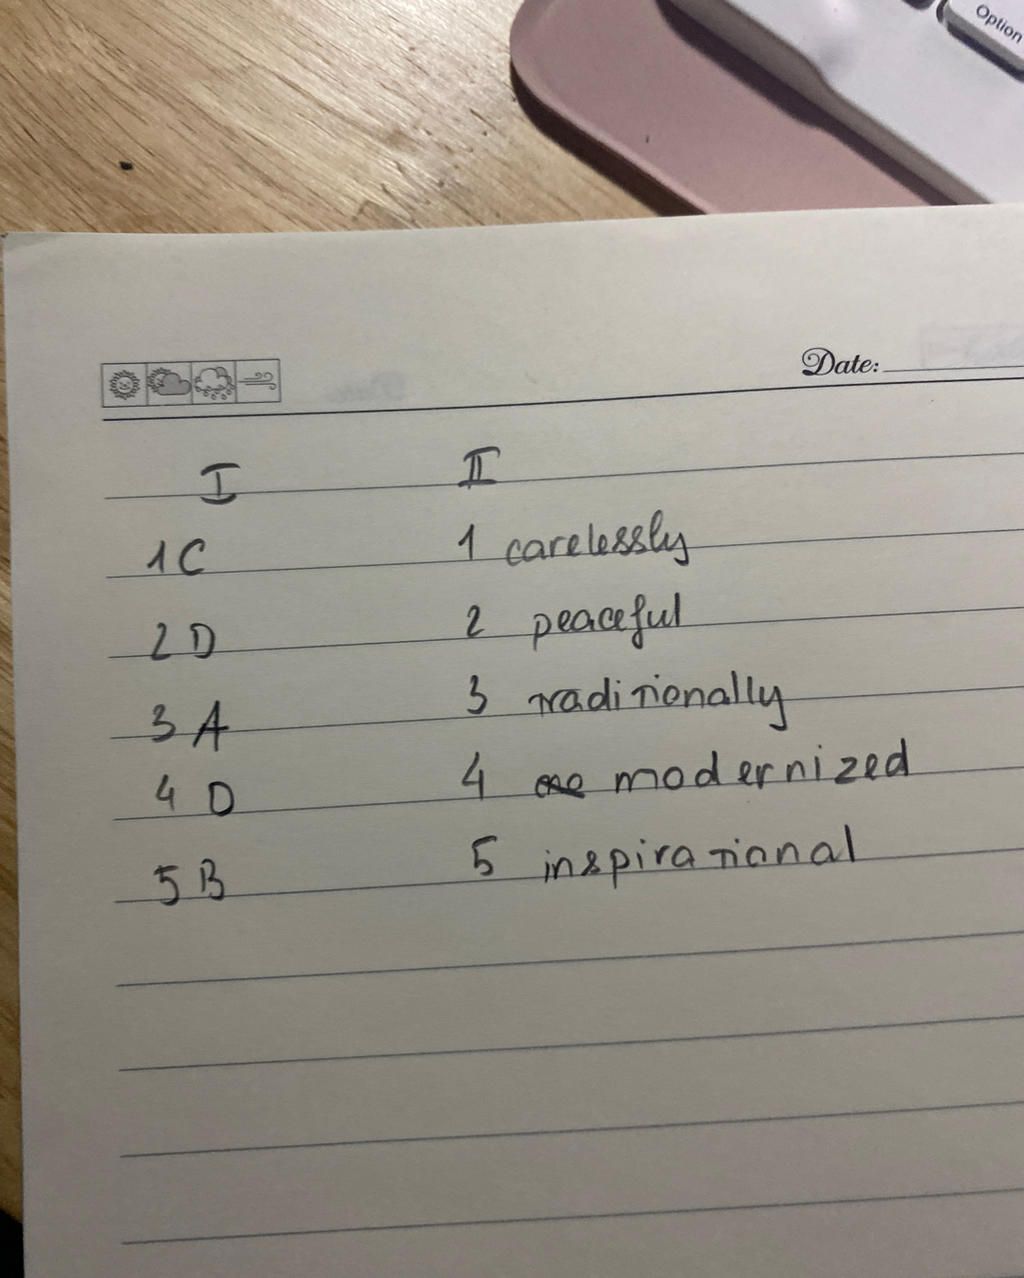 Option
Date:
I II
1 C 1 carelessly
2 D 2 peaceful
3 A 3 traditionally
4 D 4 modernized
5 B 5 inspirational